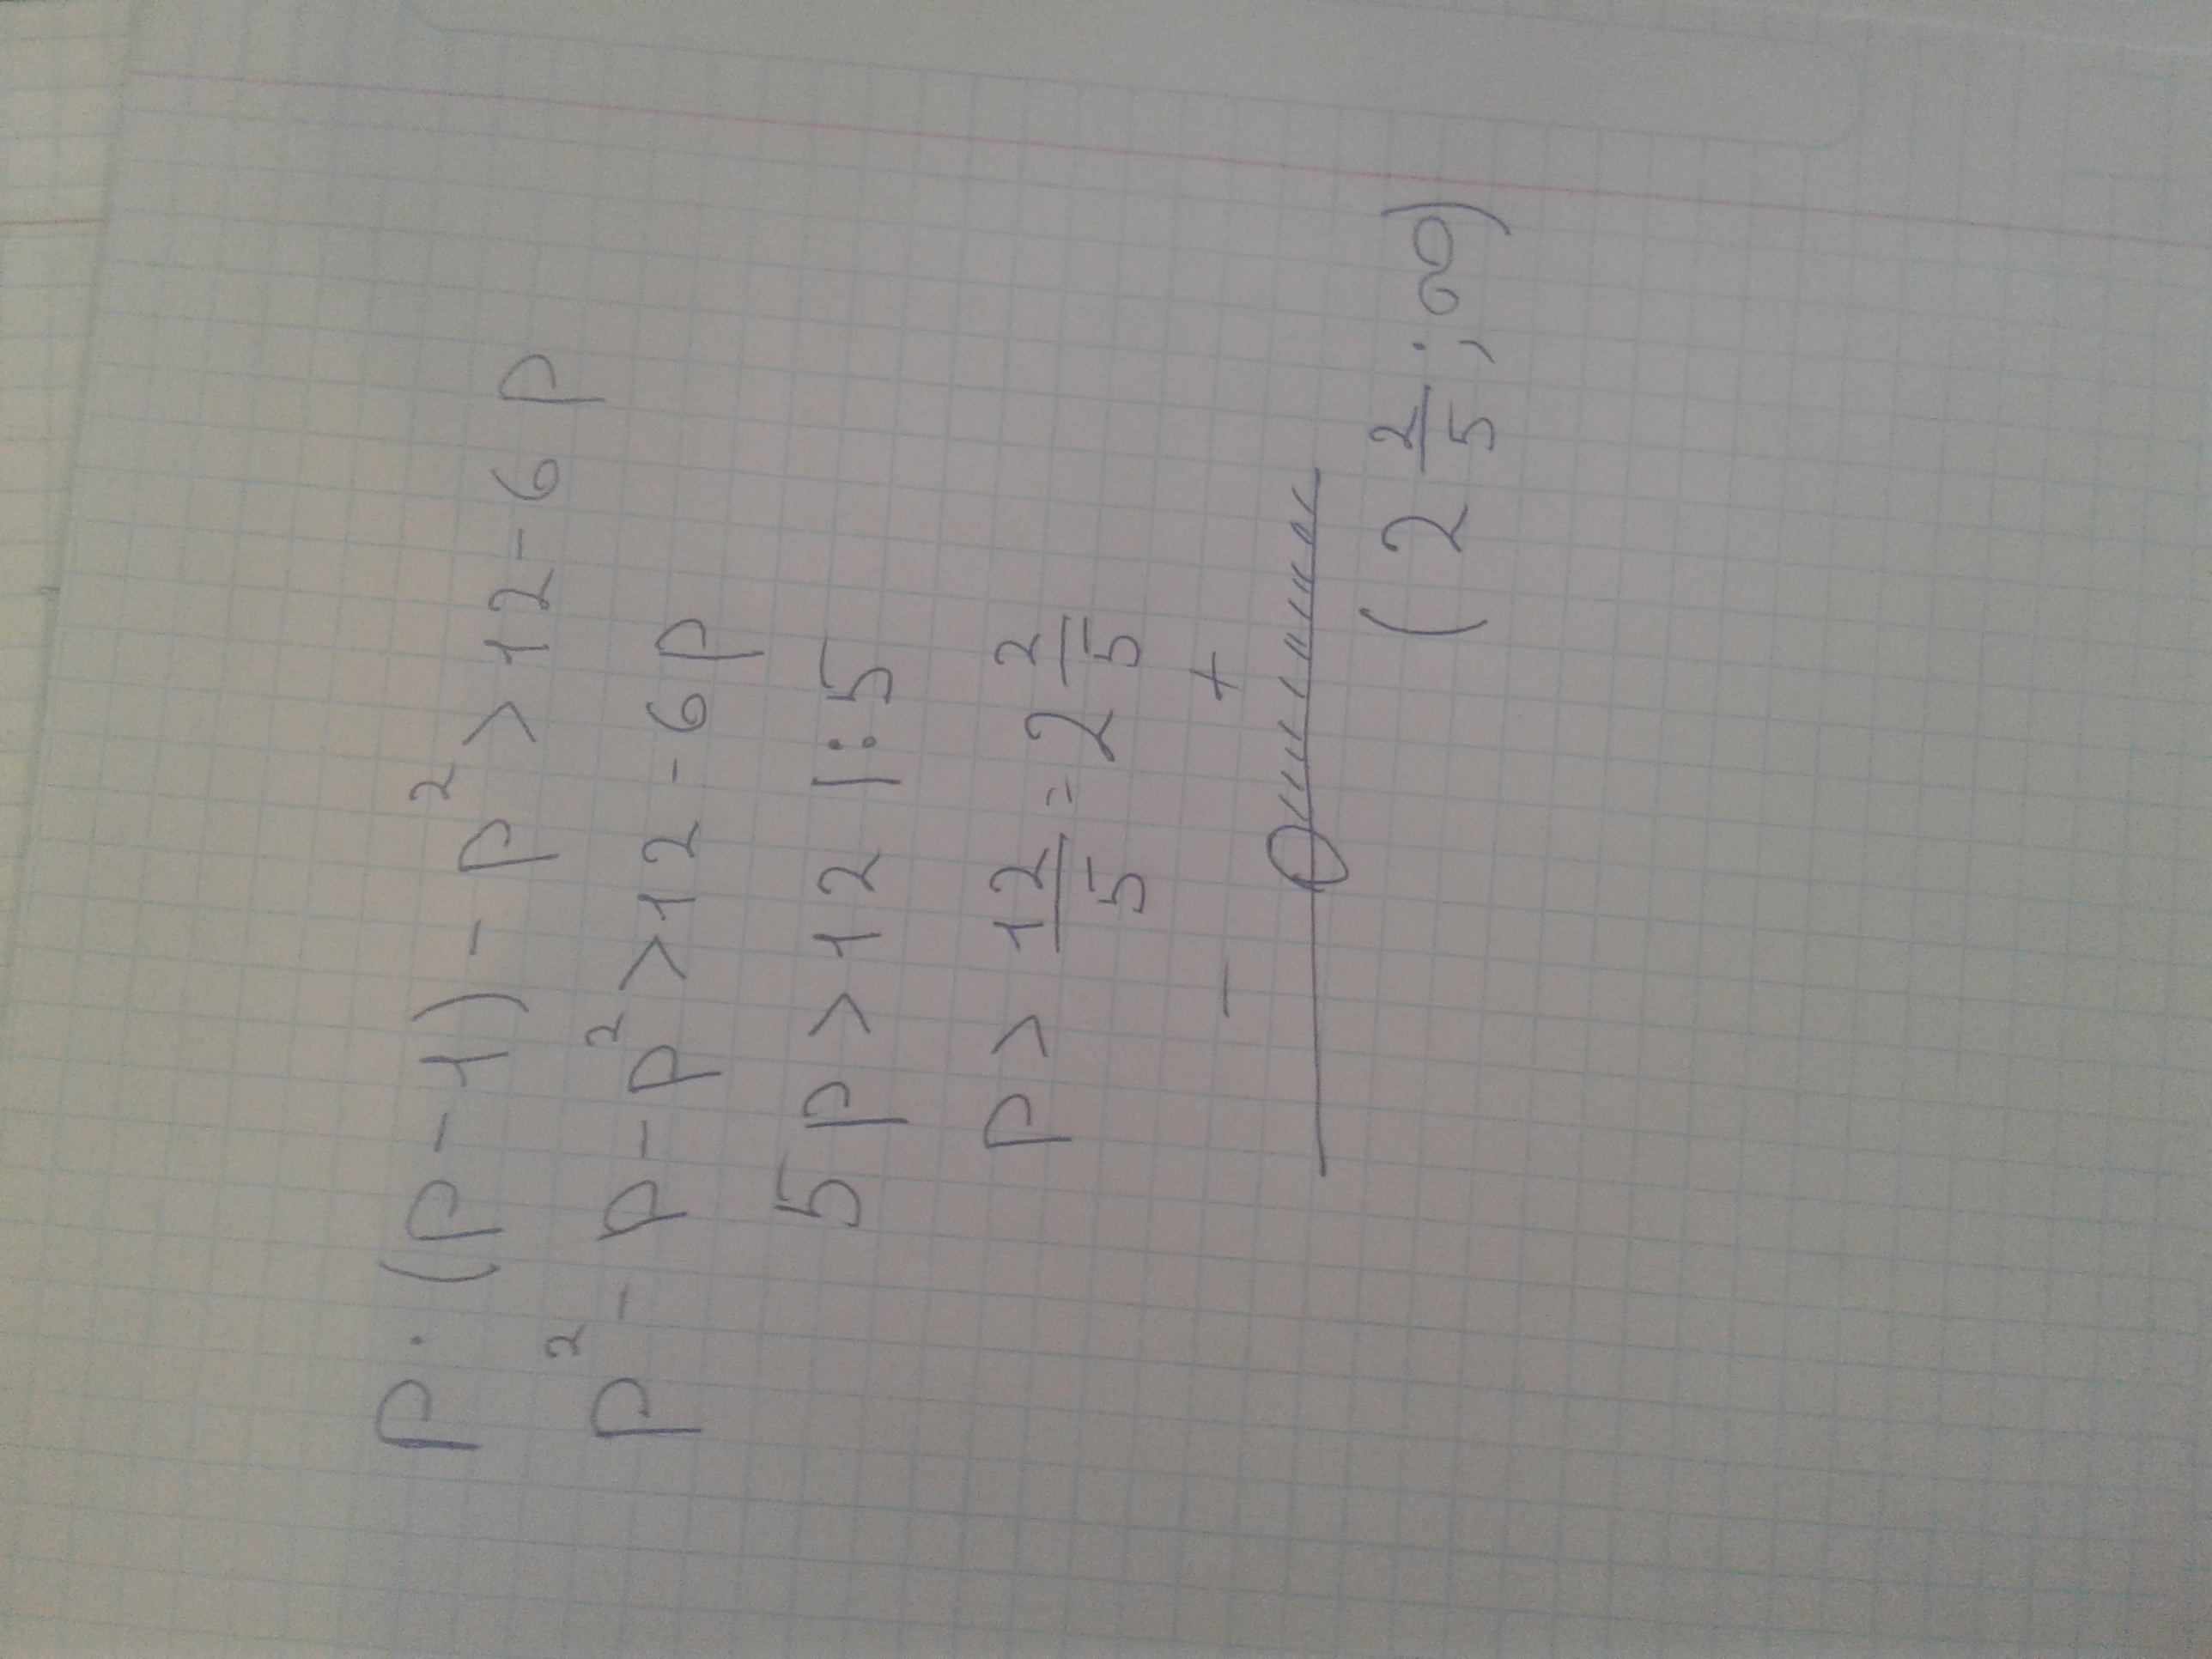 p·(p-1)-p²>12-6p
p²-p-p²>12-6p
5p>12 |:5
p>12/5=2 2/5
- +
(2 2/5;∞)